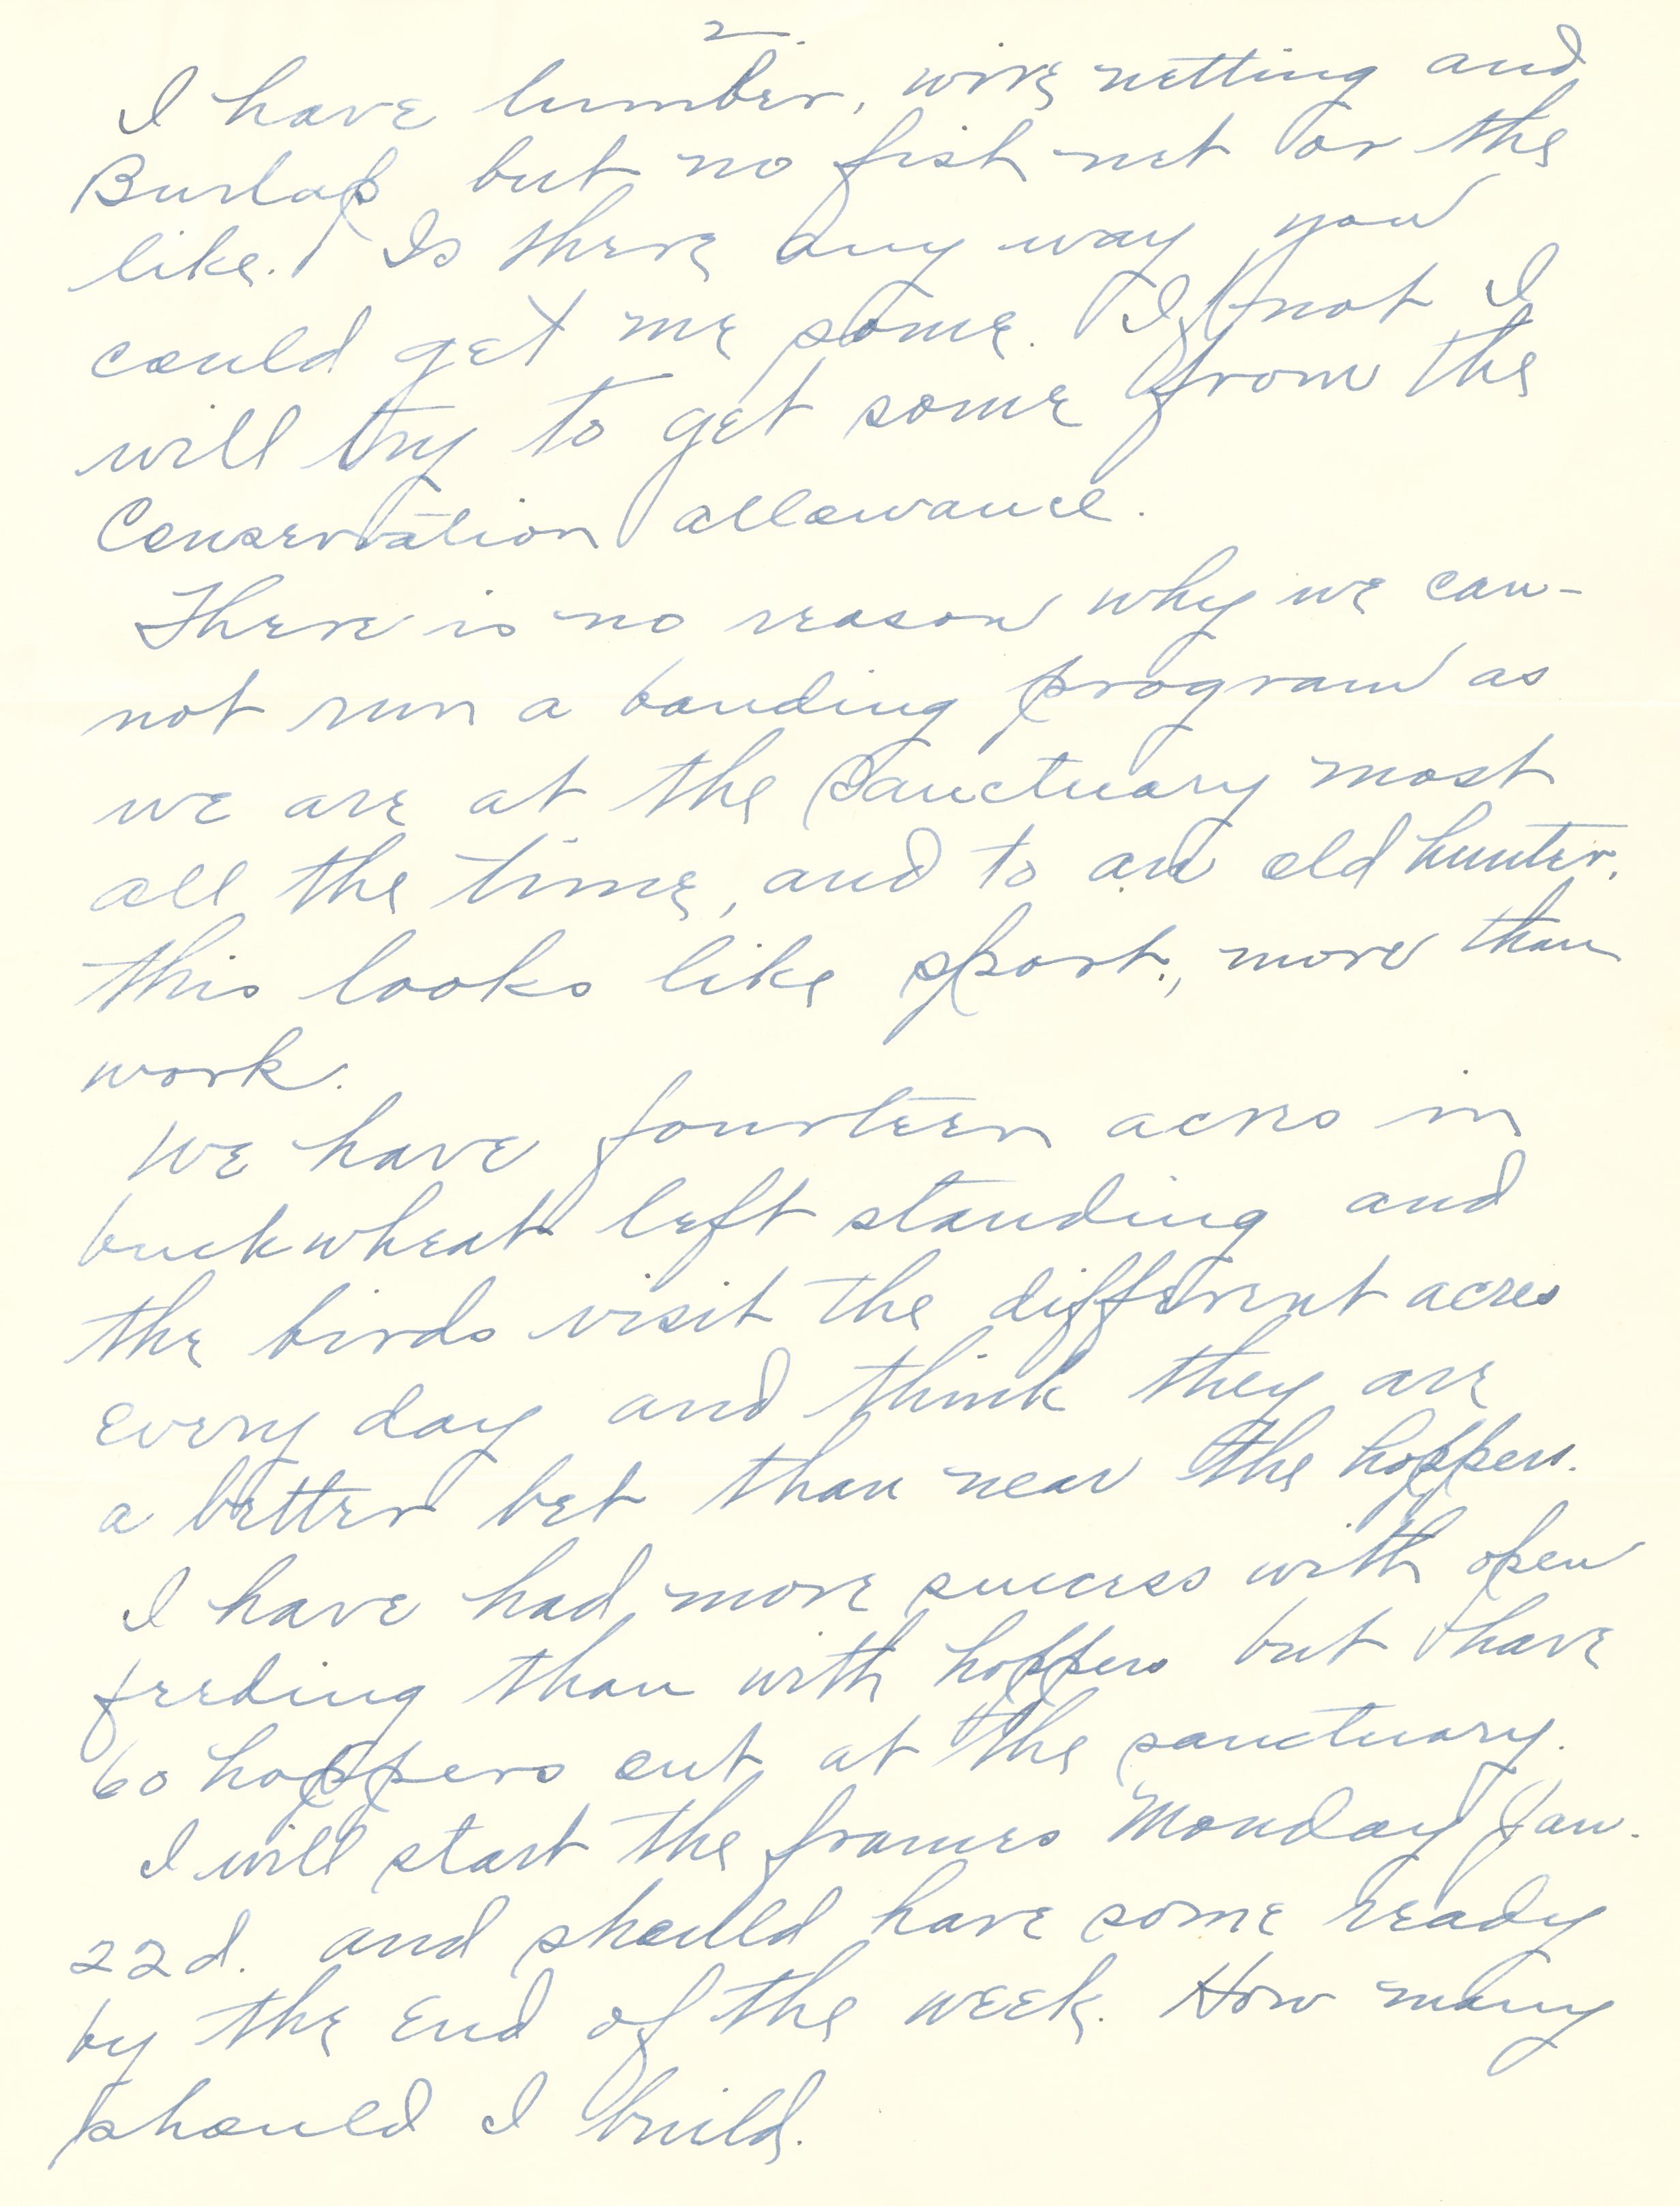 2.
I have lumber, wire netting and
Burlap but no fish net or the
like. Is there any way you
could get me some. If not I
will try to get some from the
Conservation allowance.
There is no reason why we can-
not run a banding program as
we are at the Sanctuary most
all the time, and to an old hunter,
this looks like sport, more than
work.
We have fourteen acres in
buckwheat left standing and
the birds visit the different acres
every day and think they are
a better bet than near the hoppers.
I have had more success with open
feeding than with hoppers but have
60 hoppers out at the sanctuary.
I will start the frames Monday Jan.
22d. and should have some ready
by the end of the week. How many
should I build.